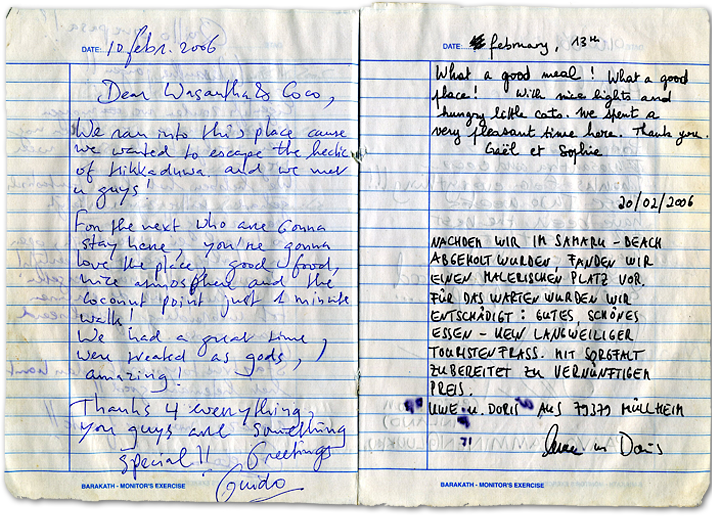 DATE: 10 febr. 2006
Dear Wasantha & Coco,
We ran into this place cause
we wanted to escape the hectic
of Hikkaduwa and we met
u guys!
For the next who are Gonna
stay here, you're gonna
love the place, good food,
nice atmosphere and the
coconut point just 1 minute
walk!
We had a great time,
were treated as gods,
amazing!
Thanks 4 everything,
you guys are something
special!! Greetings
Guido
BARAKATH - MONITOR'S EXERCISE
DATE: february, 13th
What a good meal! What a good
place! With nice lights and
hungry little cats. We spent a
very pleasant time here. Thank you.
Gaël et Sophie
20/02/2006
NACHDEM WIR IM SAMARU - BEACH
ABGEHOLT WURDEN FANDEN WIR
EINEN MALERISCHEN PLATZ VOR.
FÜR DAS WARTEN WURDEN WIR
ENTSCHÄDIGT: GUTES, SCHÖNES
ESSEN - KEIN LANGWEILIGER
TOURISTENFRASS. MIT SORGFALT
ZUBEREITET ZU VERNÜNFTIGEM
PREIS.
UWE u. DORIS AUS 79379 MÜLLHEIM
Uwe un Doris
BARAKATH - MONITOR'S EXERCISE